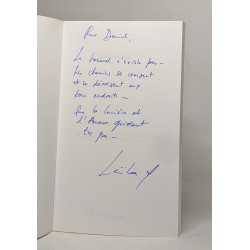 Pour Daniel,
Le hasard n'existe pas –
Les chemins se croisent
et se décroisent aux
bons endroits –
Que la lumière et
l'Amour guident
tes pas –